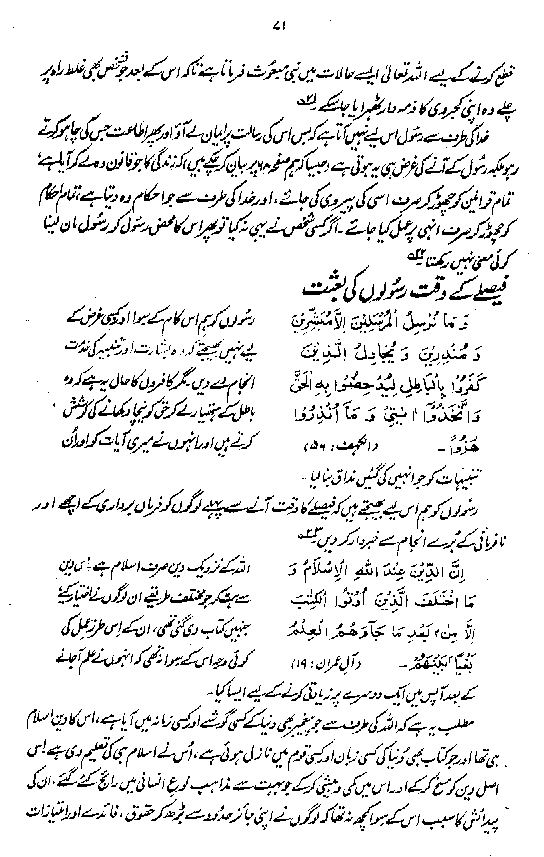 ۷۱
قطع کرنے کے لیے اللہ تعالیٰ ایسے حالات میں نبی مبعوث فرماتا ہے تاکہ اس کے بعد جو شخص بھی غلط راہ پر
چلے وہ اپنی کجروی کا ذمہ دار ٹھہرایا جا سکے
خدا کی طرف سے رسول اس لیے نہیں آتا ہے کہ بس اس کی رسالت پر ایمان لے آؤ اور پھر اطاعت جس کی چاہو کرتے
رہو بلکہ رسول کے آنے کی غرض ہی یہ ہوتی ہے جیسا کہ ہم صفحہ پر بیان کر چکے ہیں کہ زندگی کا جو قانون وہ لے کر آیا ہے،
تمام قوانین کو چھوڑ کر صرف اسی کی پیروی کی جائے، اور خدا کی طرف سے جو احکام وہ دیتا ہے، تمام احکام
کو چھوڑ کر صرف انہی پر عمل کیا جائے ۔ اگر کسی شخص نے یہی نہ کیا تو پھر اس کا محض رسول کو رسول مان لینا
کوئی معنی نہیں رکھتا
فیصلے کے وقت رسولوں کی بعثت
وَمَا نُرْسِلُ الْمُرْسَلِيْنَ اِلَّا مُبَشِّرِيْنَ
وَ مُنْذِرِيْنَ وَ يُجَادِلُ الَّذِيْنَ
كَفَرُوْا بِالْبَاطِلِ لِيُدْحِضُوْا بِهِ الْحَقَّ
وَاتَّخَذُوْا اٰيٰتِيْ وَمَآ اُنْذِرُوْا
هُزُوًا ۔ (الکہف: ۵۶)
رسولوں کو ہم اس کام کے سوا اور کسی غرض کے
لیے نہیں بھیجتے کہ وہ بشارت اور تنبیہ کی خدمت
انجام دے دیں۔ مگر کافروں کا حال یہ ہے کہ وہ
باطل کے ہتھیار لے کر حق کو نیچا دکھانے کی کوشش
کرتے ہیں اور انہوں نے میری آیات کو اور ان
تنبیہات کو جو انہیں کی گئیں مذاق بنا لیا ۔
رسولوں کو ہم اس لیے بھیجتے ہیں کہ فیصلے کا وقت آنے سے پہلے لوگوں کو فرماں برداری کے اچھے اور
نافرمانی کے بُرے انجام سے خبردار کر دیں
اِنَّ الدِّيْنَ عِنْدَ اللهِ الْاِسْلَامُ وَ
مَا اخْتَلَفَ الَّذِيْنَ اُوْتُوا الْكِتٰبَ
اِلَّا مِنْ بَعْدِ مَا جَآءَهُمُ الْعِلْمُ
بَغْيًا بَيْنَهُمْ ۔ (آل عمران: ۱۹)
اللہ کے نزدیک دین صرف اسلام ہے۔ اس دین
سے ہٹ کر جو مختلف طریقے ان لوگوں نے اختیار کیے
جنہیں کتاب دی گئی تھی، ان کے اس طرزِ عمل کی
کوئی وجہ اس کے سوا نہ تھی کہ انہوں نے علم آ جانے
کے بعد آپس میں ایک دوسرے پر زیادتی کرنے کے لیے ایسا کیا ۔
مطلب یہ ہے کہ اللہ کی طرف سے جو پیغمبر بھی دنیا کے کسی گوشے اور کسی زمانہ میں آیا ہے، اس کا دین اسلام
ہی تھا اور جو کتاب بھی دنیا کی کسی زبان اور کسی قوم میں نازل ہوئی ہے، اُس نے اسلام ہی کی تعلیم دی ہے۔ اس
اصل دین کو مسخ کر کے اور اس میں کمی و بیشی کر کے جو بہت سے مذاہب نوعِ انسانی میں رائج کئے گئے، ان کی
پیدائش کا سبب اس کے سوا کچھ نہ تھا کہ لوگوں نے اپنی جائز حدود سے بڑھ کر حقوق، فائدے اور امتیازات